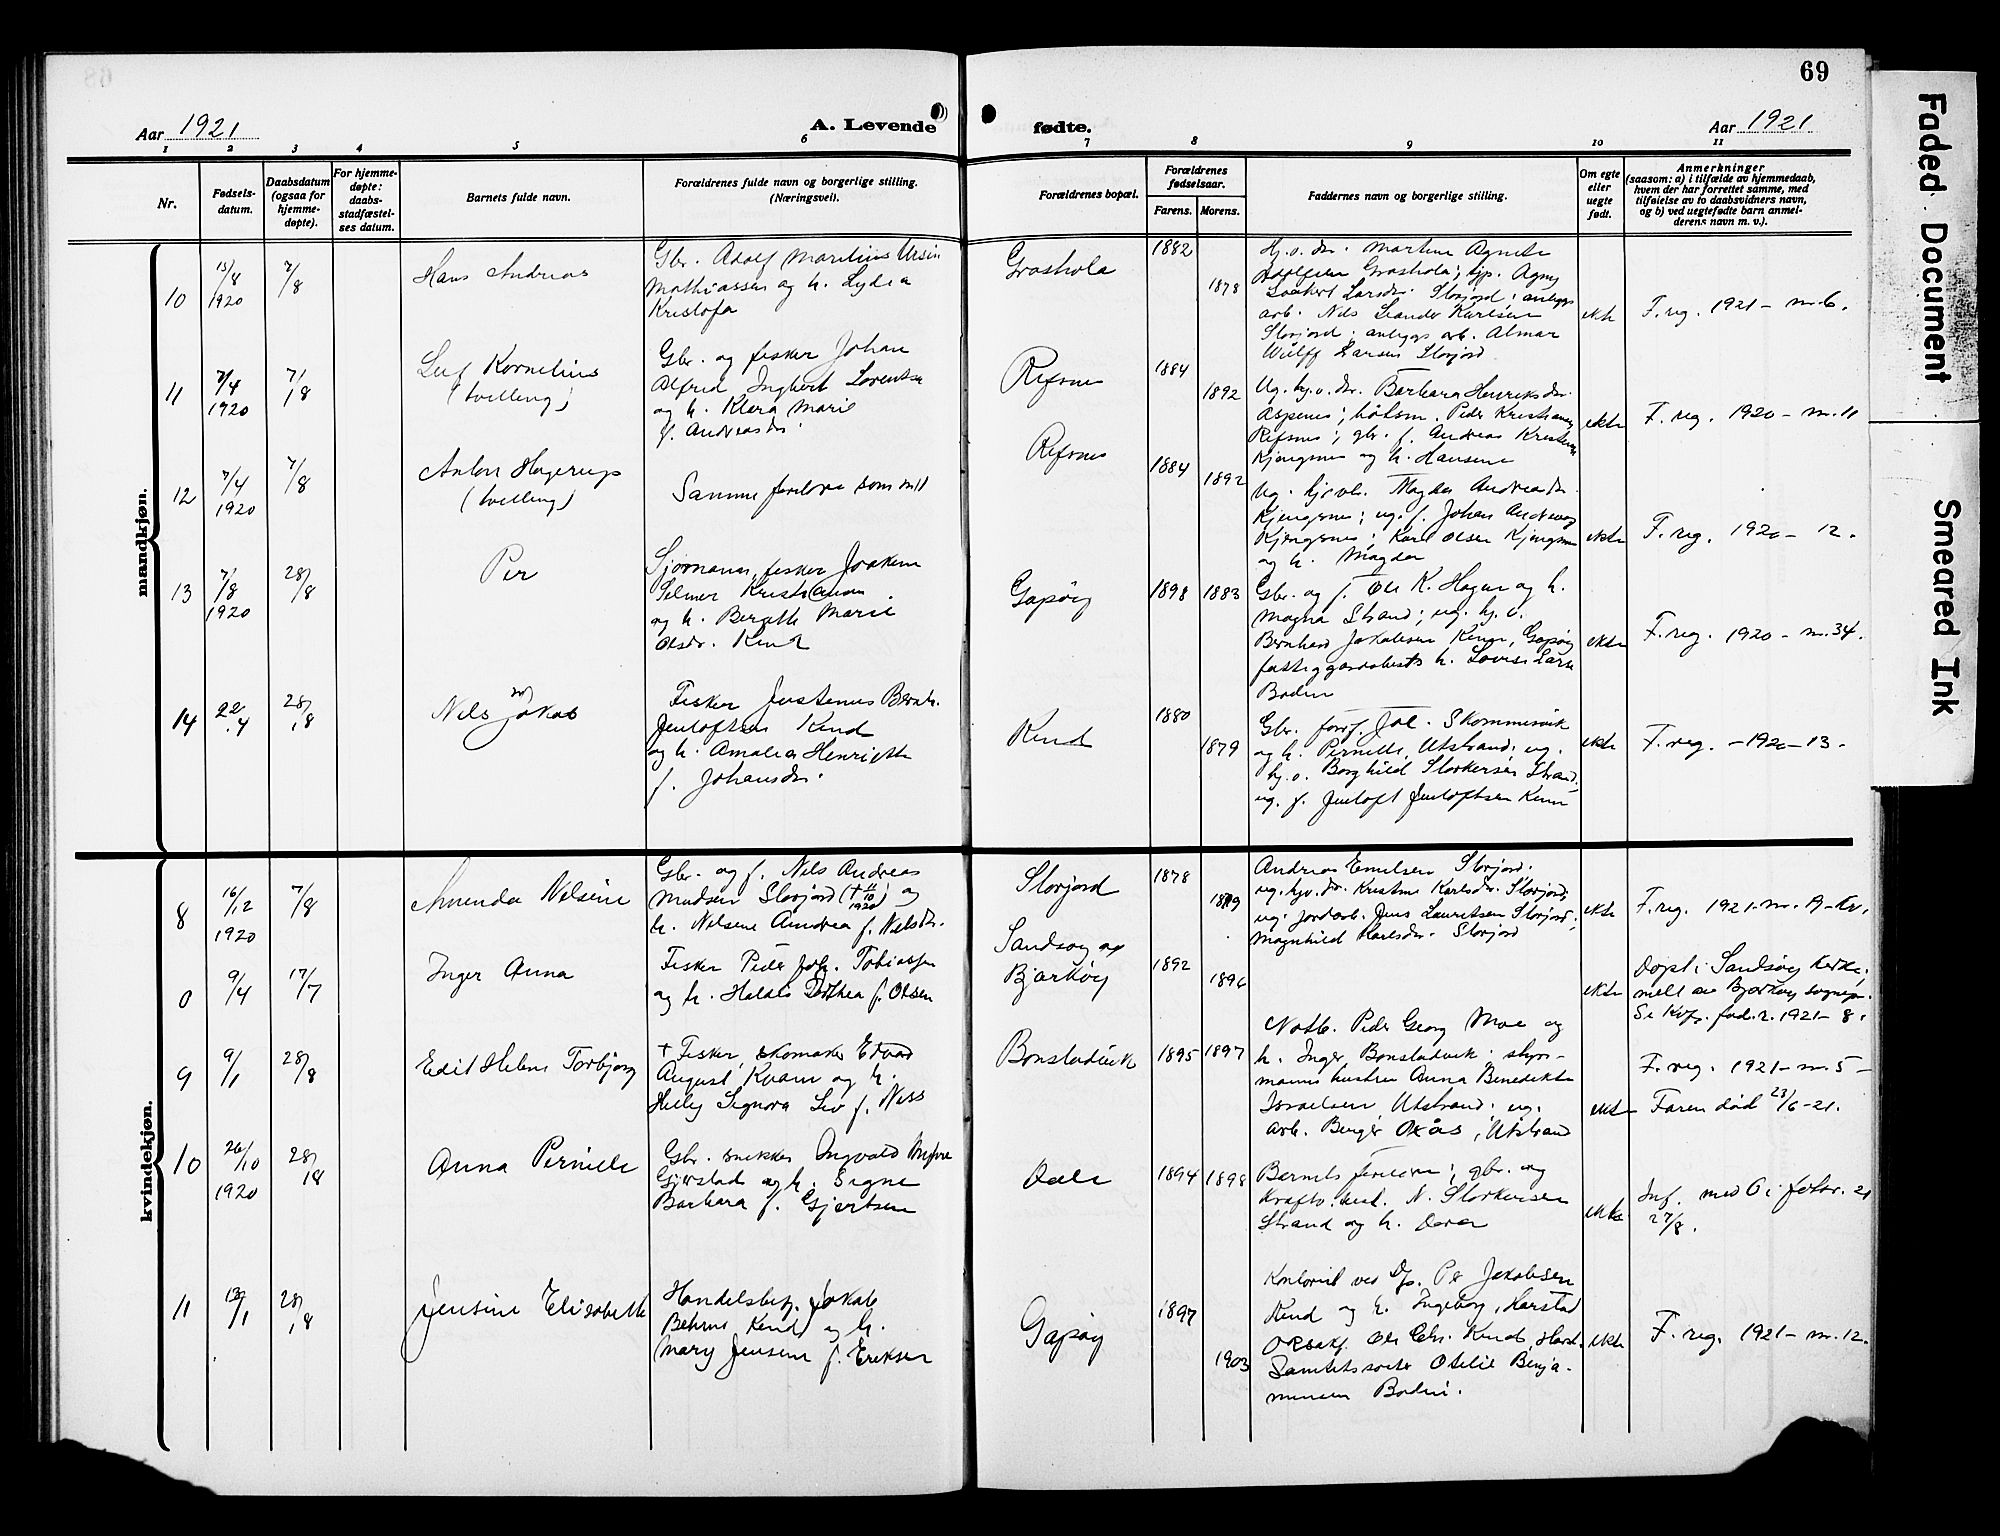 69
Aar 1921
A. Levende
fødte.
Aar 1921
1 2 3 4 5 6 7 8 9 10 11
Nr.
Fødsels-
datum.
Daabsdatum
(ogsaa for
hjemme-
døpte).
For hjemme-
døpte:
daabs-
stadfæstel-
ses datum.
Barnets fulde navn.
Forældrenes fulde navn og borgerlige stilling.
(Næringsvei).
Forældrenes bopæl.
Forældrenes
fødselsaar.
Farens. Morens.
Faddernes navn og borgerlige stilling.
Om egte
eller
uegte
født.
Anmerkninger
(saasom: a) i tilfælde av hjemmedaab,
hvem der har forrettet samme, med
tilføielse av to daabsvidners navn,
og b) ved uegtefødte barn anmel-
derens navn m. v.).
mandkjøn.
10
15/8
1920
7/8
Hans Andreas
Gbr. Adolf Marelius Ursin
Mathiassen og h. Lydia
Kristofa
Grashola
1882
1878
Hj.v. dr. Martine Agnete
Adolfsen Grashola; hjp. Agny
Larsdr. Storjord; anlæggs
arb. Nils Leander Karlsen
Storjord; anlæggs arb. Almar
Wulff Larsen Storjord
ekte
F. reg. 1921 - nr. 6.
11
7/4
1920
7/8
Leif Kornelius
(tvilling)
Gbr. og fisker Johan
Alfred Ingbert Lorentsen
og h. Klara Marie
f. Andreasdr.
Refsnes
1884
1892
Ug. hj.v. dr. Barbara Henriksdr.
Aspenes; baatsm. Peder Kristiansen
Refsnes; gbr. f. Andreas Kristensen
Kjengsnes og h. Hansine
ekte
F. reg. 1920 - nr. 11
12
7/4
1920
7/8
Anton Hagerup
(tvilling)
Samme foreldre som nr 11
Refsnes
1884
1892
Ug. hjevh. Magda Andreasdr.
Kjengsnes; ug. f. Johan Andreas
Kjengsnes; Karl Olsen Kjengsnes
og h. Magda
ekte
F. reg. 1920 - 12.
13
7/8
1920
28/8
Per
Sjømann, fisker Joakim
Selmer Kristiansen
og h. Bergitte Marie
Olsdr. Kind
Gapøy
1898 1883
Gbr. og f. Ole K. Hagen og h.
Magna Strand; ug. hj. v.
Bernhard Jakobsen Kinn, Gapøy
h. Lovise Larsen
Bodin
ekte
F. reg. 1920 - nr. 34.
14
22/4
28/8
Nils Jakob
Fisker Justenus Bernh.
Jentoftsen Kind
og h. Amalia Henrijette
f. Johansdr.
Kind
1880
1879
Gbr. forrf. Joh. Skommesvik
og h. Pernille, Utstrand; ug.
hj. v. Borghild Storkersen Strand;
ug. f. Jentoft Jentoftsen Kinn
ekte
F. reg. - 1920 - 13.
kvindekjøn.
8
16/12
1920
7/8
Amanda Nilsine
Gbr. og f. Nils Andreas
Madsen Storjord († 11/10 1920) og
h. Nilsine Amdrea f. Nilsdr.
Storjord
1878
1879
Andreas Emilsen Storjord;
ug. hjv. dr. Kristine Karlsdr. Storjord;
ug. jordarb. Jens Lauritsen Storjord;
Magnhild Karlsdr. Storjord
ekte
F. reg. 1921 - nr. 9 - kv.
0
9/4
17/7
Inger Anna
Fisker Peder Joh. Tobiassen
og h. Haldis Dorthea f. Olsen
Sandsøy og
Bjarkøy
1892
1896
ekte
Døpt i Sandsøy kirke;
meldt av Bjarkøy sognepr.
Se Kvf. fød. r. 1921 - 8.
9
9/1
28/8
Edit Helene Torbjørg
† Fisker, skomaker Edvard
August Kvam og h.
Helly Signora Liv f. Ness
Bonsladvik
1895 1897
Notb. Peder Georg Moe og
h. Inger, Bonsladvik; styr-
manns hustru Anna Benedikte
Israelsen, Utstrand; ug.
arb. Birger Oxås, Utstrand
ekte
F. reg. 1921 - nr. 5 -
Faren død 23/6 - 21.
10
26/10
1920
28/8
Anna Pernille
Gbr. snekker Ingvald Myhre
Gjerstad og h. Signe
Barbara f. Gjertsen
Dale
1894 1898
Barnets foreldre; gbr. og
N. Storkersen
Strand og h. Dorea
ekte
Inf. med 0 i fødsr. 21
27/8.
11
13/1
28/8
Jensine Elisabeth
Handelsbetj. Jakob
Behrns Kind og h.
Mary Jensine f. Eriksen
Gapøy
1897
1903
Kontorist ved Dps. Per Jakobsen
Kind og h. Ingeborg, Harstad
Ole Chr. Kind, Harst.
Otelie Benja-
minsen Bodin.
ekte
F. reg. 1921 - nr. 12.
Faded Document
Smeared Ink